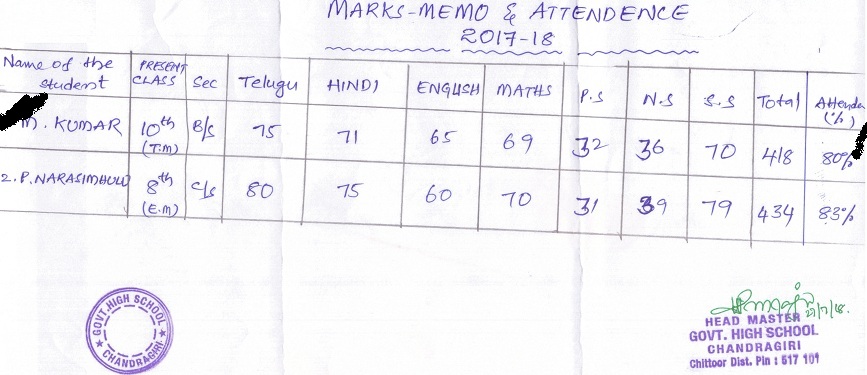 MARKS-MEMO & ATTENDENCE
2017-18
Name of the student PRESENT CLASS Sec Telugu HINDI ENGLISH MATHS P.S N.S S.S Total Attenda (%)
M. KUMAR 10th (T.M) B/s 75 71 65 69 32 36 70 418 80%
2. P. NARASIMHULU 8th (E.M) C/s 80 75 60 70 31 39 79 434 83%
GOVT. HIGH SCHOOL
CHANDRAGIRI
27/7/18.
HEAD MASTER
GOVT. HIGH SCHOOL
CHANDRAGIRI
Chittoor Dist. Pin : 517 101